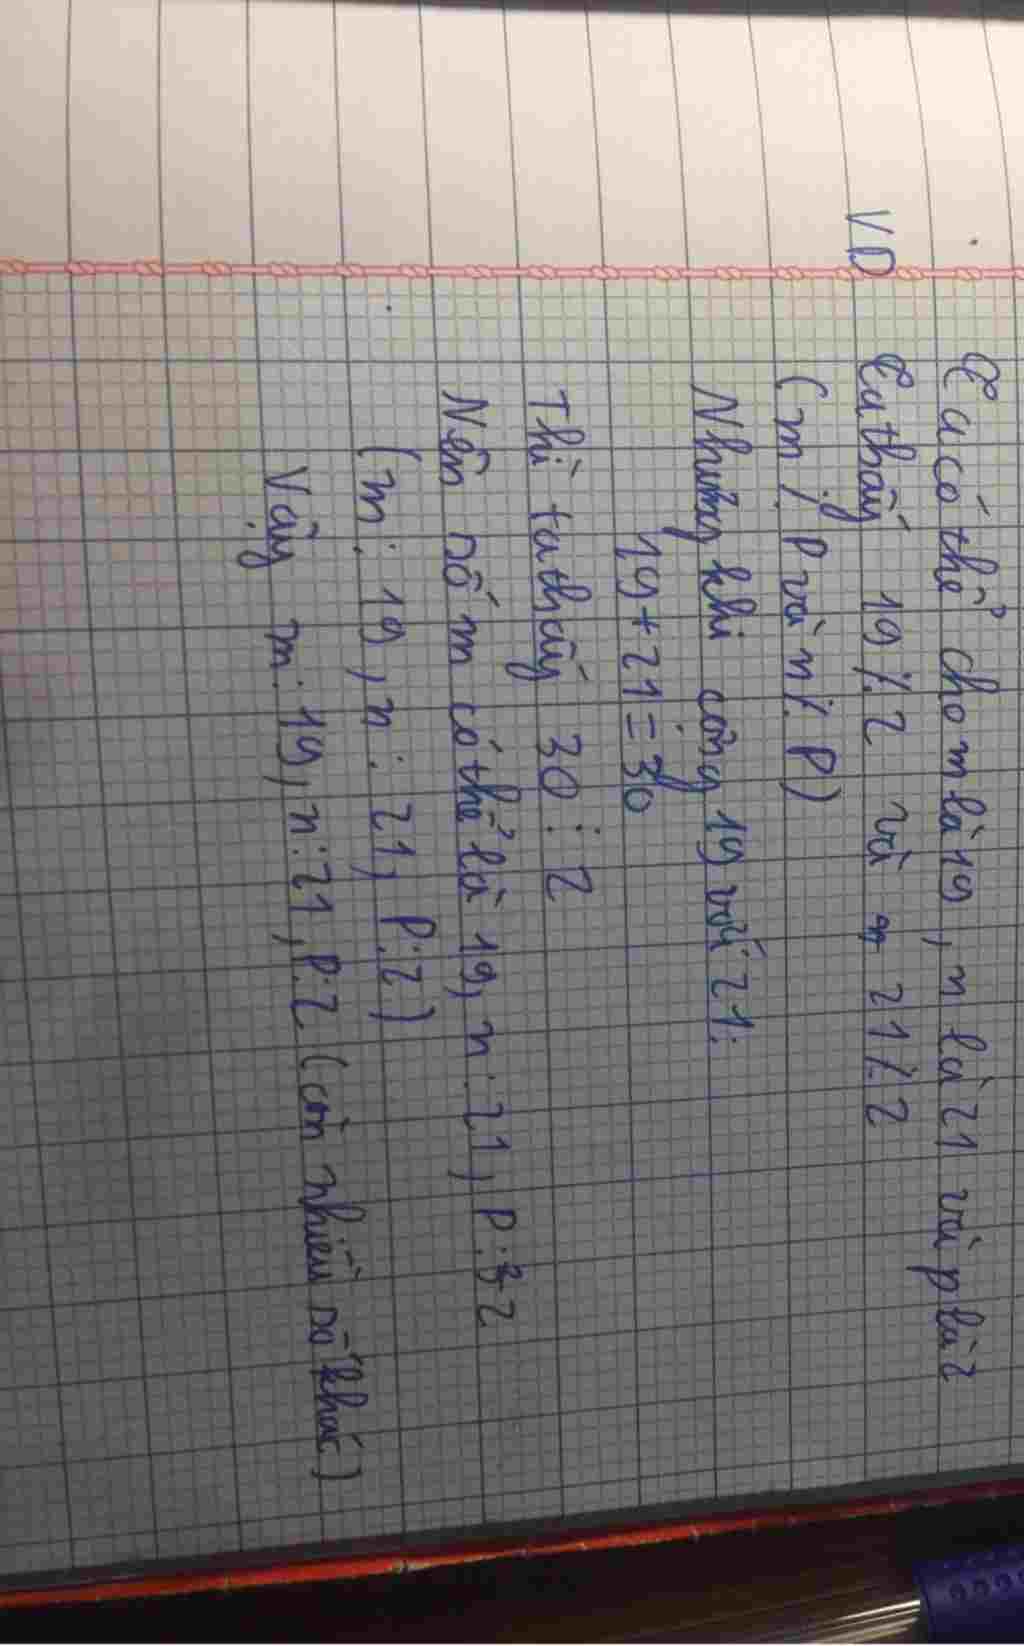 Ta có thể cho m là 19, n là 21 và p là 2
VD Ta thấy 19 ⋮̸ 2 và 21 ⋮̸ 2
(m ⋮̸ P và n ⋮̸ P)
Nhưng khi cộng 19 với 21:
19 + 21 = 30
Thì ta thấy 30 ⋮ 2
Nên số m có thể là 19, n: 21, P: 2
(m: 19, n: 21, P: 2)
Vậy m: 19, n: 21, P: 2 (còn nhiều số khác)